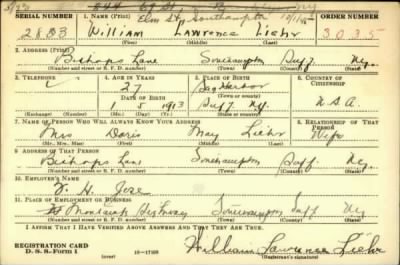 SERIAL NUMBER 1. NAME (Print) Elm St, Southampton ORDER NUMBER
2803 William Lawrence Liehr 3035
(First) (Middle) (Last)
2. ADDRESS (Print)
Bishops Lane Southampton Suff. Ny.
(Number and street or R. F. D. number) (Town) (County) (State)
3. TELEPHONE 4. AGE IN YEARS 5. PLACE OF BIRTH 6. COUNTRY OF CITIZENSHIP
27 Sag Harbor
DATE OF BIRTH (Town or county)
1 5 1913 Suff. Ny. U.S.A.
(Exchange) (Number) (Mo.) (Day) (Yr.) (State or country)
7. NAME OF PERSON WHO WILL ALWAYS KNOW YOUR ADDRESS 8. RELATIONSHIP OF THAT PERSON
Mrs Doris May Liehr Wife
(Mr., Mrs., Miss) (First) (Middle) (Last)
9. ADDRESS OF THAT PERSON
Bishops Lane Southampton Suff. Ny.
(Number and street or R. F. D. number) (Town) (County) (State)
10. EMPLOYER'S NAME
W. H.
11. PLACE OF EMPLOYMENT OR BUSINESS
Montauk Highway Southampton Suff Ny.
(Number and street or R. F. D. number) (Town) (County) (State)
I AFFIRM THAT I HAVE VERIFIED ABOVE ANSWERS AND THAT THEY ARE TRUE.
REGISTRATION CARD
D. S. S. Form 1 (over) 16—17105 William Lawrence Liehr
(Registrant's signature)